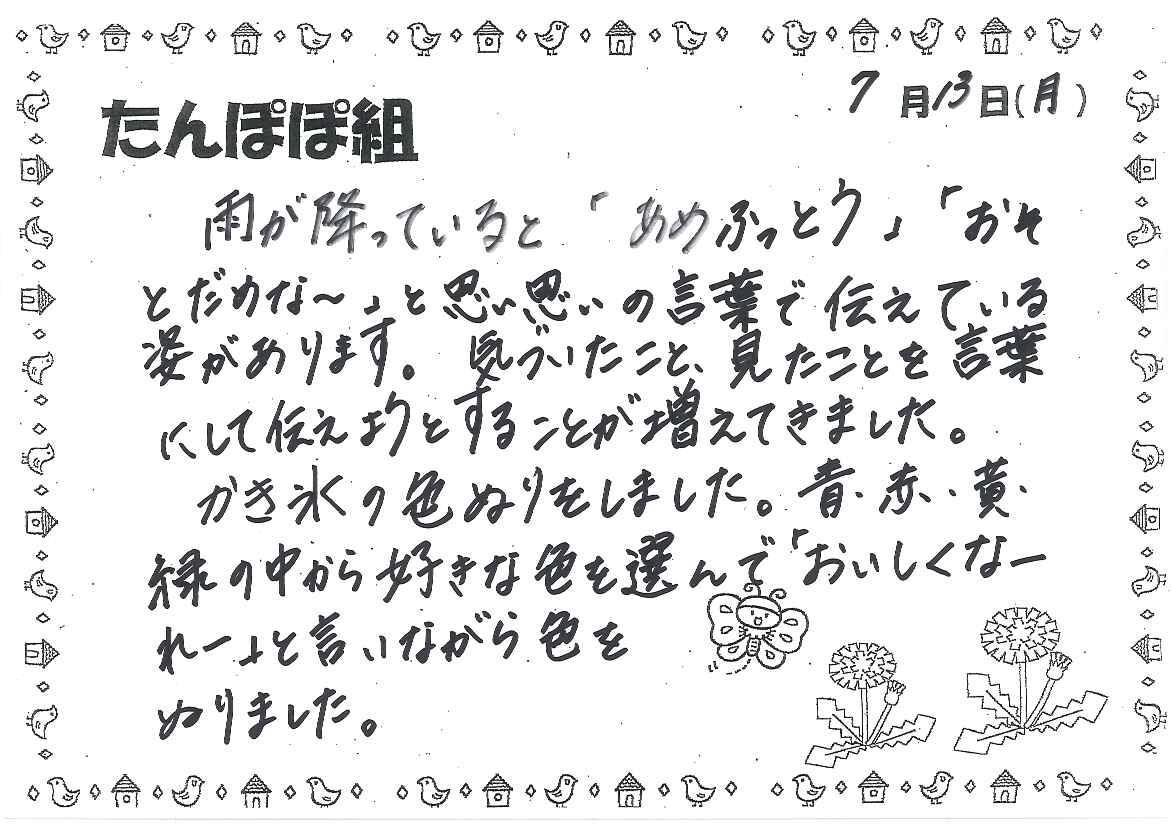 7月13日(月)
たんぽぽ組
雨が降っていると「あめふっとう」「おそ
とだめな～」と思い思いの言葉で伝えている
姿があります。気づいたこと、見たことを言葉
にして伝えようとすることが増えてきました。
かき氷の色ぬりをしました。青・赤・黄・
緑の中から好きな色を選んで「おいしくなー
れー」と言いながら色を
ぬりました。